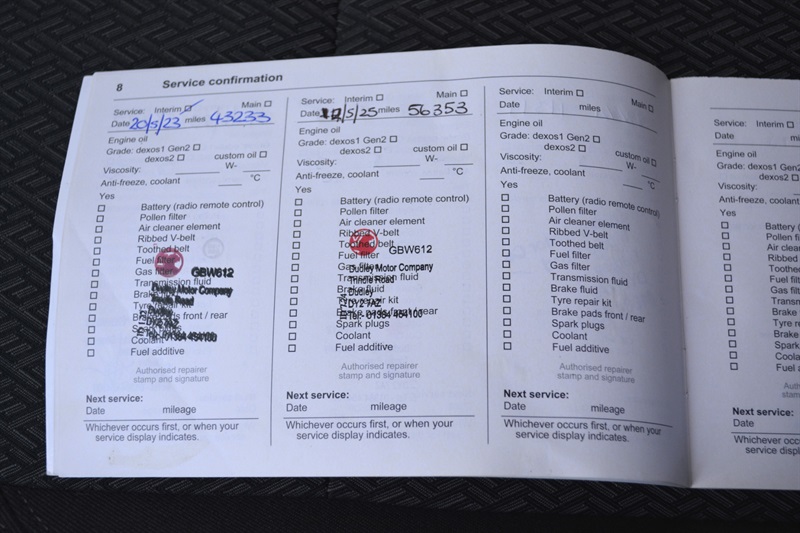 8 Service confirmation
Service: Interim Main
Date 20/5/23 miles 43233
Engine oil
Grade: dexos1 Gen2
dexos2 custom oil
Viscosity: W-
Anti-freeze, coolant °C
Yes
Battery (radio remote control)
Pollen filter
Air cleaner element
Ribbed V-belt
Toothed belt
Fuel filter
Gas filter
GBW612
Transmission fluid
Dudley Motor Company
Trindle Road
Dudley
DY2 7AZ
Tel:- 01384 454100
Coolant
Fuel additive
Authorised repairer
stamp and signature
Next service:
Date mileage
Whichever occurs first, or when your
service display indicates.
Service: Interim Main
Date /5/25 miles 56353
Engine oil
Grade: dexos1 Gen2
dexos2 custom oil
Viscosity: W-
Anti-freeze, coolant °C
Yes
Battery (radio remote control)
Pollen filter
Air cleaner element
Ribbed V-belt
Toothed belt
GBW612
Fuel filter
Gas filter
Dudley Motor Company
Transmission fluid
Trindle Road
Brake fluid
Dudley
Tyre repair kit
DY2 7AZ
Brake pads front / rear
Tel:- 01384 454100
Spark plugs
Coolant
Fuel additive
Authorised repairer
stamp and signature
Next service:
Date mileage
Whichever occurs first, or when your
service display indicates.
Service: Interim Main
Date miles
Engine oil
Grade: dexos1 Gen2
dexos2 custom oil
Viscosity: W-
Anti-freeze, coolant °C
Yes
Battery (radio remote control)
Pollen filter
Air cleaner element
Ribbed V-belt
Toothed belt
Fuel filter
Gas filter
Transmission fluid
Brake fluid
Tyre repair kit
Brake pads front / rear
Spark plugs
Coolant
Fuel additive
Authorised repairer
stamp and signature
Next service:
Date mileage
Whichever occurs first, or when your
service display indicates.
Service: Interim
Date
Engine oil
Grade: dexos1 Gen2
dexos2
Viscosity:
Anti-freeze, coolant
Yes
Battery
Pollen
Air cle
Ribbed
Toothed
Fuel fil
Gas filt
Transm
Brake
Tyre re
Brake
Spark
Coola
Fuel a
Autho
stamp
Next service:
Date
Whichever occurs
service display